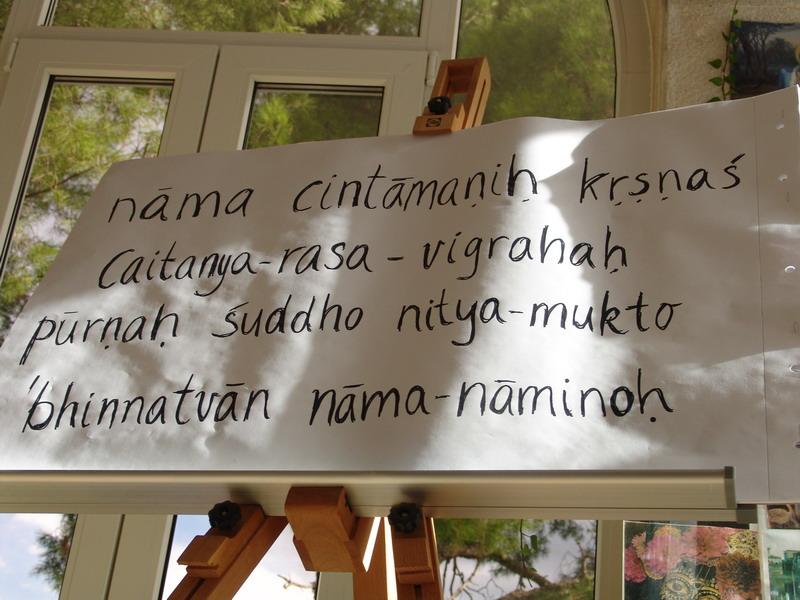 nāma cintāmaṇiḥ kṛṣṇaś
Caitanya-rasa-vigrahaḥ
pūrṇaḥ śuddho nitya-mukto
'bhinnatvān nāma-nāminoḥ